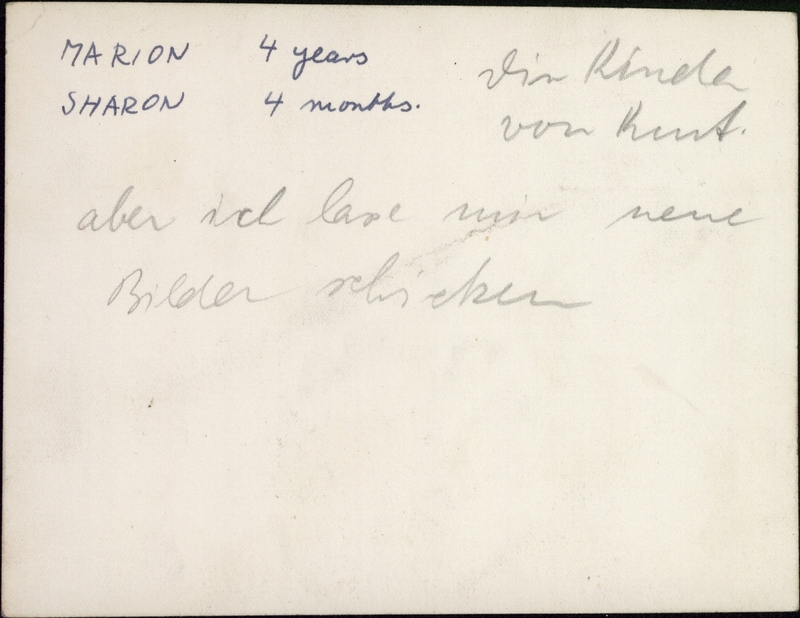 MARION 4 years
SHARON 4 months.
die Kinder
von Kurt.
aber ich lase mir neue
Bilder schicken